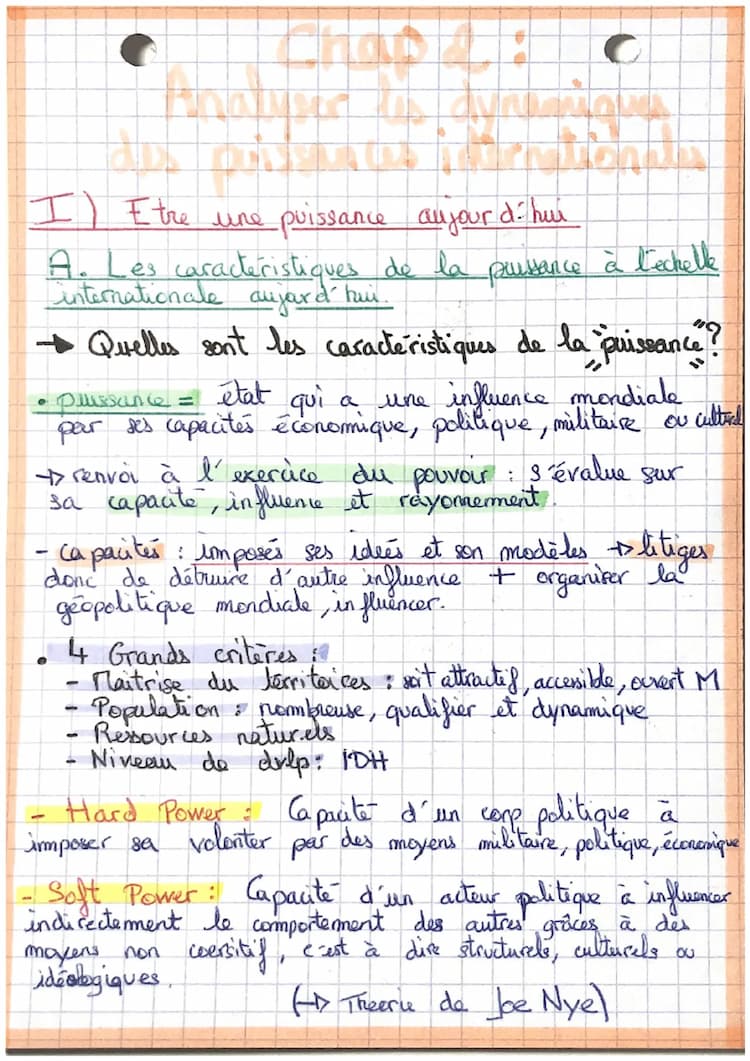 Chap 2 :
Analyser les dynamiques
des puissances internationales
I) Etre une puissance aujourd'hui
A. Les caractéristiques de la puissance à l'echelle
internationale aujourd'hui.
→ Quelles sont les caractéristiques de la "puissance" ?
• puissance = état qui a une influence mondiale
par ses capacités économique, politique, militaire ou culturel
→ renvoi à l'exercice du pouvoir : s'évalue sur
sa capacité, influence et rayonnement.
- Capacités : imposés ses ideés et son modèles → litiges
donc de détruire d'autre influence + organiser la
géopolitique mondiale, influencer.
• 4 Grands critères :
- Maitrise du territoires : soit attractif, accessible, ouvert M
- Population : nombreuse, qualifier et dynamique
- Ressources naturels
- Niveau de dvlp : IDH
- Hard Power : Capacité d'un corp politique à
imposer sa volonter par des moyens militaire, politique, économique
- Soft Power : Capacité d'un acteur politique à influencer
indirectement le comportement des autres grâces à des
moyens non coersitif, c'est à dire structurels, culturels ou
idéologiques.
(→ Theorie de Joe Nye)